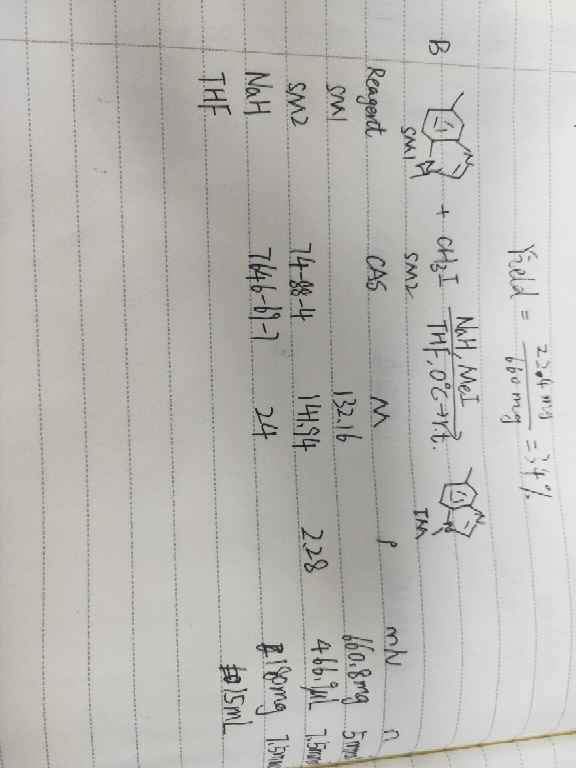 Yield = 224mg / 660mg = 34%
B
+ CH3I NaH, MeI THF, 0°C→r.t.
SM1 SM2 TM
Reagent CAS M ρ m/V n
SM1 132.16 660.8mg 5mmol
SM2 74-88-4 141.94 2.28 466.9μL 7.5mmol
NaH 7646-69-7 24 180mg 7.5mmol
THF 15mL